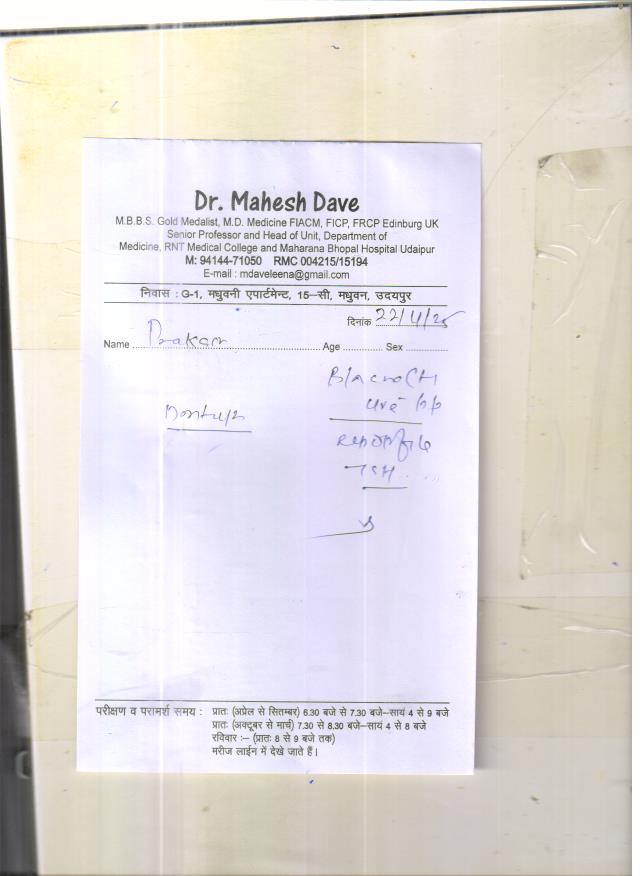 Dr. Mahesh Dave
M.B.B.S. Gold Medalist, M.D. Medicine FIACM, FICP, FRCP Edinburg UK
Senior Professor and Head of Unit, Department of
Medicine, RNT Medical College and Maharana Bhopal Hospital Udaipur
M: 94144-71050 RMC 004215/15194
E-mail : mdaveleena@gmail.com
निवास : G-1, मधुवनी एपार्टमेन्ट, 15–सी, मधुवन, उदयपुर
दिनांक 22/4/25
Name Age Sex
TSH
परीक्षण व परामर्श समय : प्रातः (अप्रेल से सितम्बर) 6.30 बजे से 7.30 बजे–सायं 4 से 9 बजे
प्रातः (अक्टूबर से मार्च) 7.30 से 8.30 बजे–सायं 4 से 8 बजे
रविवार :– (प्रातः 8 से 9 बजे तक)
मरीज लाईन में देखे जाते हैं।